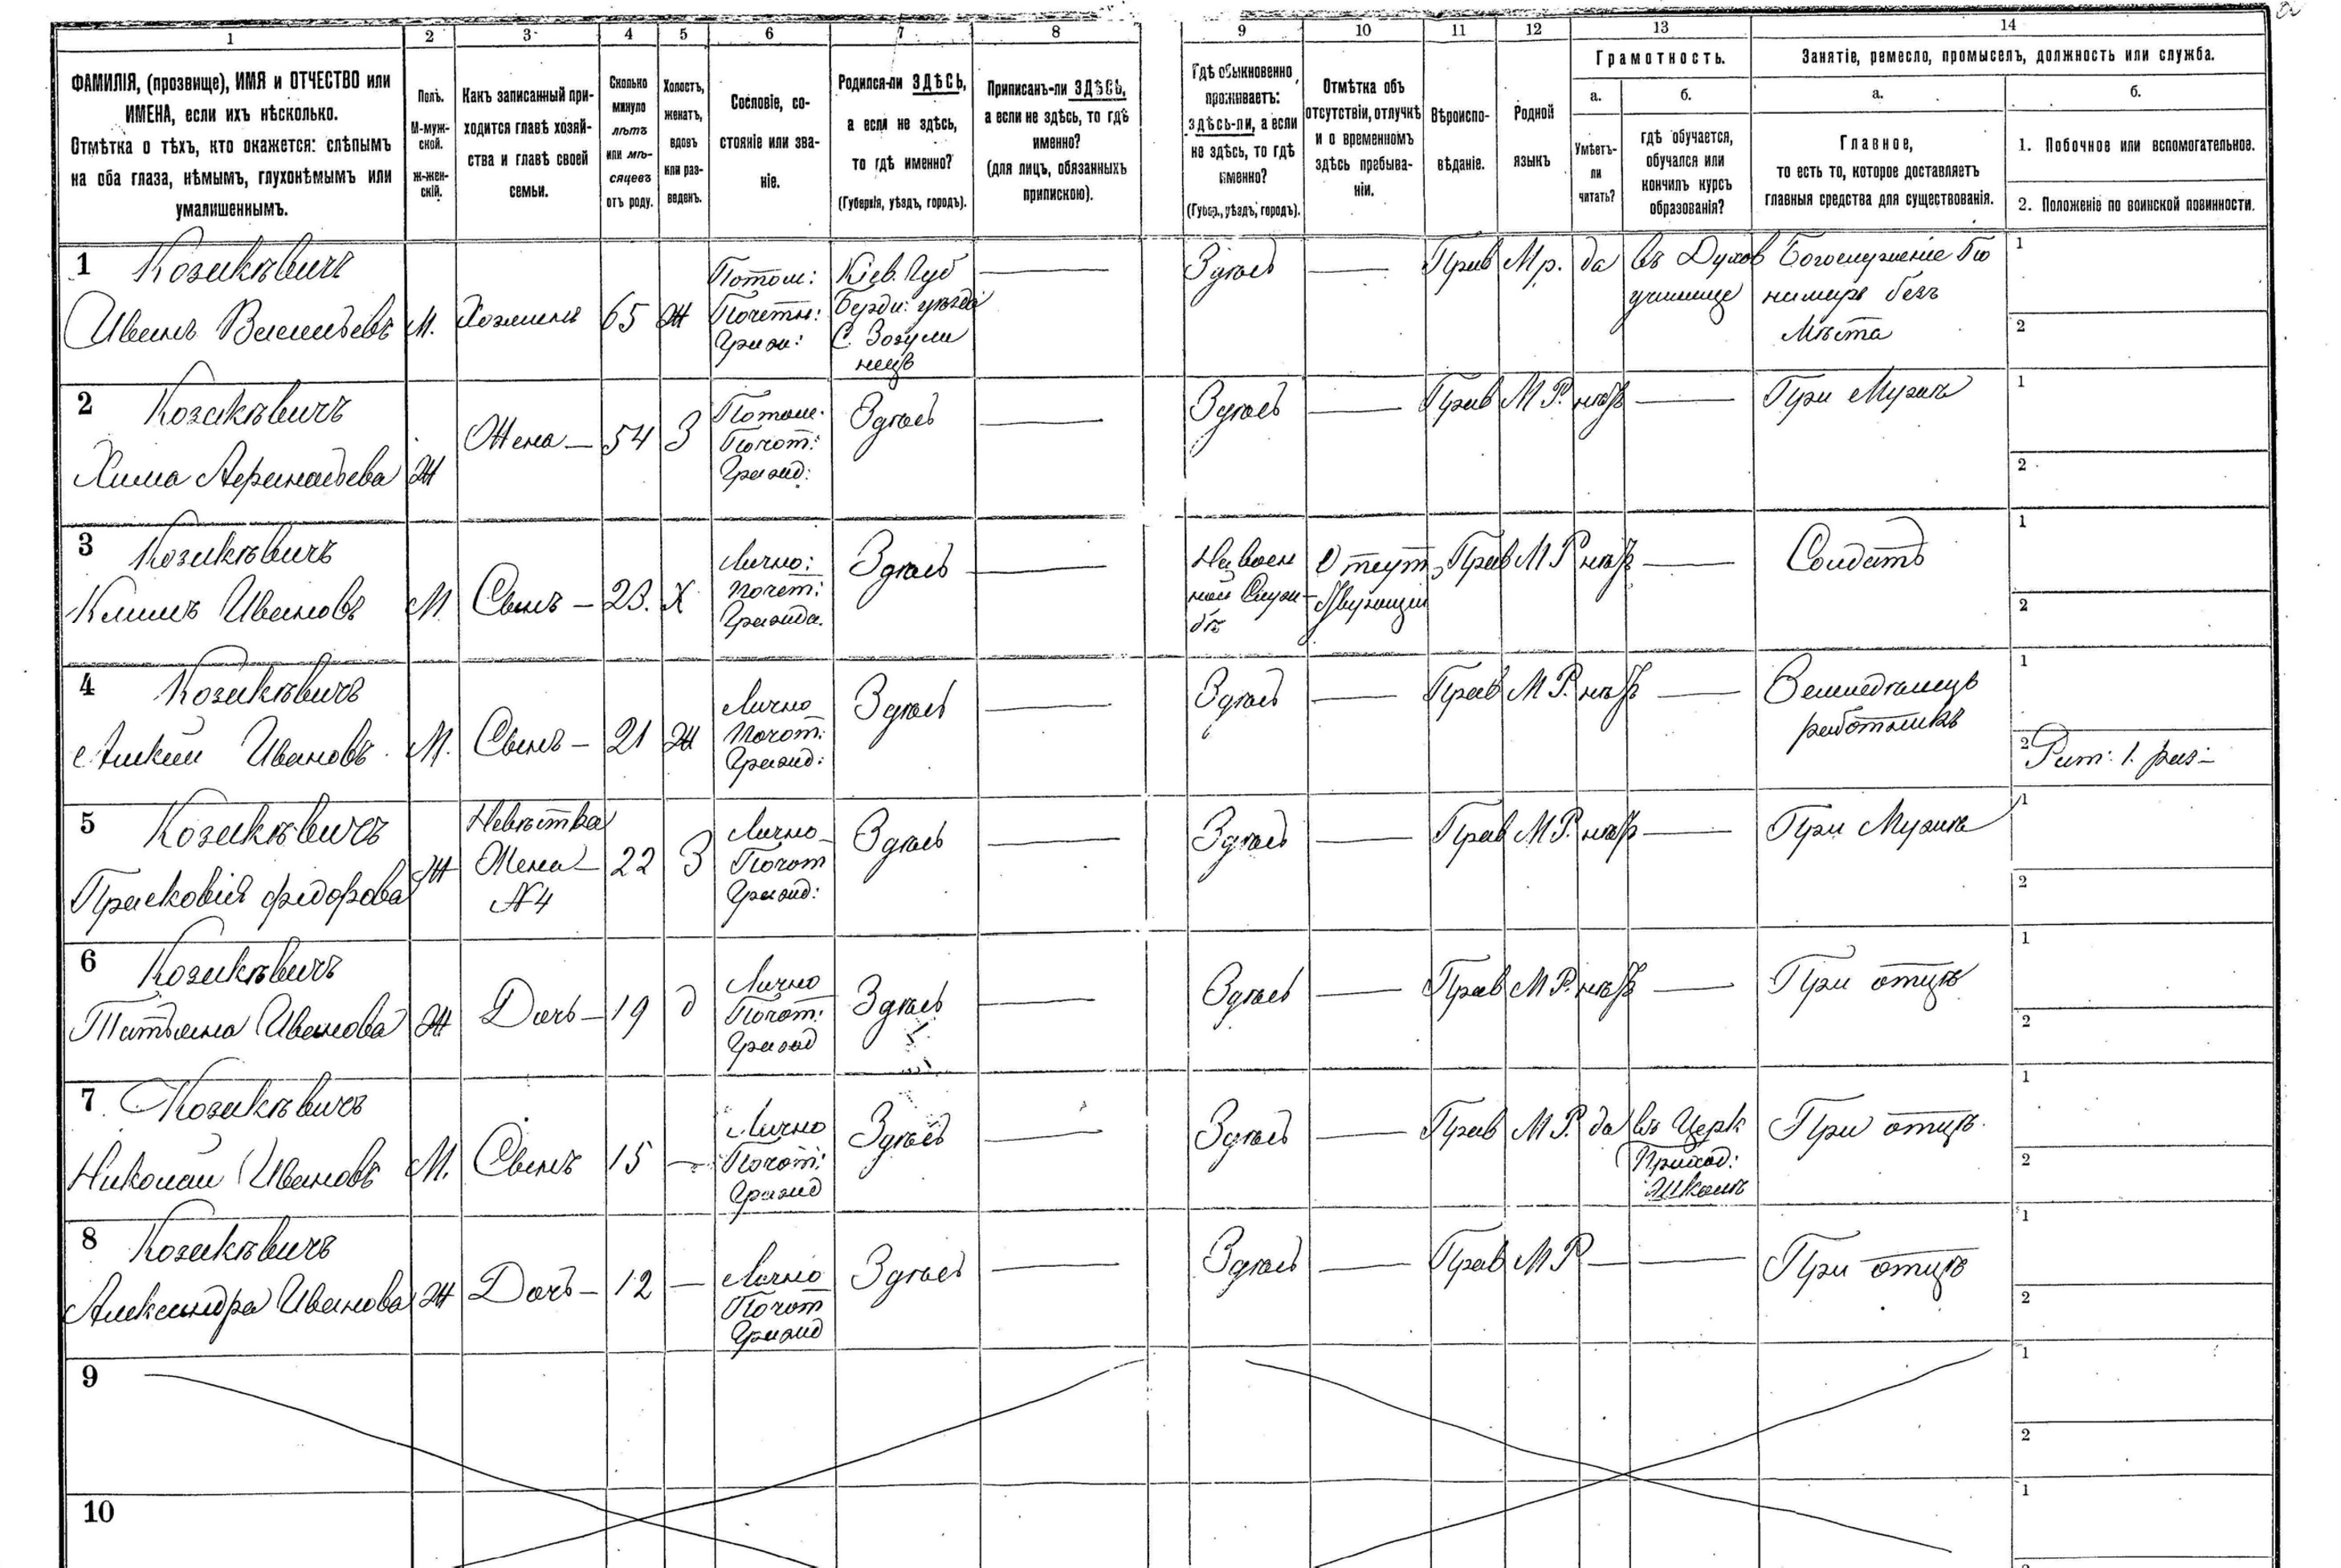 1 2 3 4 5 6 7 8 9 10 11 12 13 14
ФАМИЛІЯ, (прозвище), ИМЯ и ОТЧЕСТВО или
ИМЕНА, если ихъ нѣсколько.
Отмѣтка о тѣхъ, кто окажется: слѣпымъ
на оба глаза, нѣмымъ, глухонѣмымъ или
умалишеннымъ.
Полъ.
М-муж-
ской.
Ж-жен-
скій.
Какъ записанный при-
ходится главѣ хозяй-
ства и главѣ своей
семьи.
Сколько
минуло
лѣтъ
или мѣ-
сяцевъ
отъ роду.
Холостъ,
женатъ,
вдовъ
или раз-
веденъ.
Сословіе, со-
стояніе или зва-
ніе.
Родился-ли ЗДѢСЬ,
а если не здѣсь,
то гдѣ именно?
(Губернія, уѣздъ, городъ).
Приписанъ-ли ЗДѢСЬ,
а если не здѣсь, то гдѣ
именно?
(для лицъ, обязанныхъ
припискою).
Гдѣ обыкновенно
проживаетъ:
здѣсь-ли, а если
не здѣсь, то гдѣ
именно?
(Губер., уѣздъ, городъ).
Отмѣтка объ
отсутствіи, отлучкѣ
и о временномъ
здѣсь пребыва-
ніи.
Вѣроиспо-
вѣданіе.
Родной
языкъ
Грамотность.
а.
Умѣетъ-
ли
читать?
б.
гдѣ обучается,
обучался или
кончилъ курсъ
образованія?
Занятіе, ремесло, промыселъ, должность или служба.
а.
Главное,
то есть то, которое доставляетъ
главныя средства для существованія.
б.
1. Побочное или вспомогательное.
2. Положеніе по воинской повинности.
1 Козакѣвичъ
Иванъ Васильевъ
М.
Хозяинъ
65
Ж
Потом:
Почетн:
Граж:
Кіев. Губ
Берди: уѣзда
С. Зозули
нецъ
Здѣсь
Прав
М р.
да
въ Духов
училище
Богослуженіе По
намарь безъ
Мѣста
1
2
2 Козакѣвичъ
Хима Афанасьева
Ж
Жена
54
З
Потом.
Почот:
Гражд:
Здѣсь
Здѣсь
Прав
М Р.
нѣтъ
При Мужѣ
1
2
3 Козакѣвичъ
Климъ Ивановъ
М
Сынъ
23.
Х
Лично:
почет:
Гражда.
Здѣсь
На воен
ной Служ-
бѣ
Отсут
ствующій
Прав
М Р
нѣтъ
Солдатъ
1
2
4 Козакѣвичъ
Алкѣй Ивановъ
М.
Сынъ
21
Ж
Лично
почот:
Гражд:
Здѣсь
Здѣсь
Прав
М Р.
нѣтъ
Земледѣлецъ
работникъ
1
2 Рат: 1. раз
5 Козакѣвичъ
Прасковія Фідорова
Ж
Невѣстка
Жена
№4
22
З
Лично
Почот
Гражд:
Здѣсь
Здѣсь
Прав
М Р.
нѣтъ
При Мужѣ
1
2
6 Козакѣвичъ
Татьяна Иванова
Ж
Дочь
19
д
Лично
Почот:
Гражд
Здѣсь
Здѣсь
Прав
М Р.
нѣтъ
При отцѣ
1
2
7 Козакѣвичъ
Николай Ивановъ
М.
Сынъ
15
Лично
Почот:
Гражд
Здѣсь
Здѣсь
Прав
М Р.
да
въ Церк
Приход:
Школѣ
При отцѣ.
1
2
8 Козакѣвичъ
Александра Иванова
Ж
Дочь
12
Лично
Почот
Гражд
Здѣсь
Здѣсь
Прав
М Р
При отцѣ
1
2
9
1
2
10
1